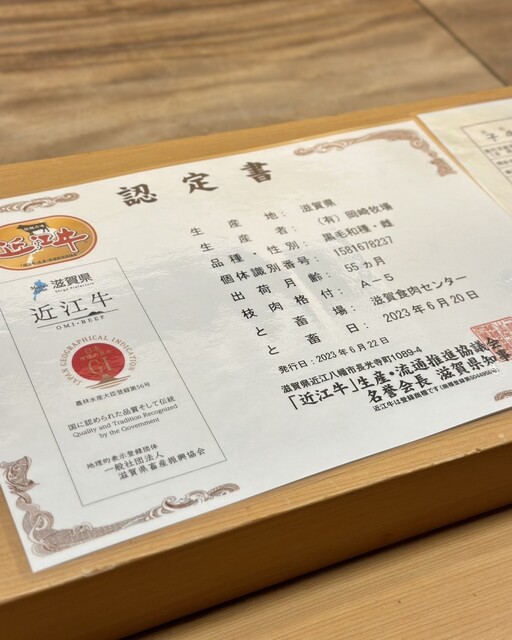 認定書
近江牛
滋賀県
Shiga Prefecture
近江牛
OMI・BEEF
JAPAN GEOGRAPHICAL INDICATION
GI
農林水産大臣登録第56号
国に認められた品質そして伝統
Quality and Tradition Recognized
by the Government
地理的表示登録団体
一般社団法人
滋賀県畜産振興協会
生産地：滋賀県
生産者：（有）岡崎牧場
品種・性別：黒毛和種・雌
個体識別番号：1581678237
出荷月齢：55カ月
枝肉格付：A－5
と畜場：滋賀食肉センター
と畜日：2023年6月20日
発行日：2023年6月22日
滋賀県近江八幡市長光寺町1089-4
「近江牛」生産・流通推進協議会
名誉会長 滋賀県知事